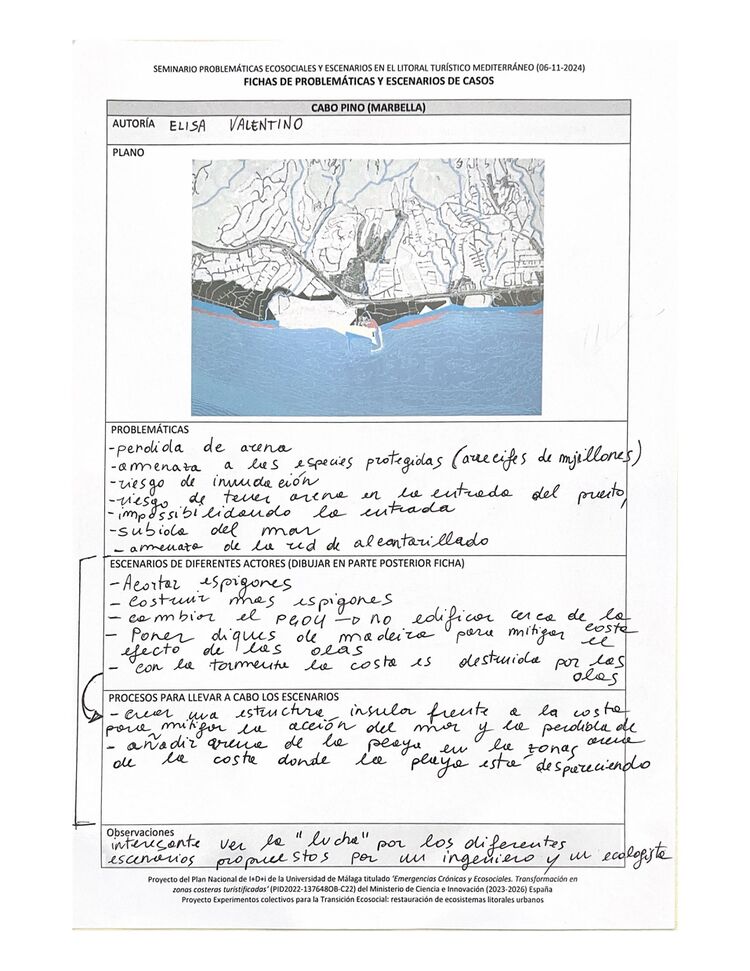 SEMINARIO PROBLEMÁTICAS ECOSOCIALES Y ESCENARIOS EN EL LITORAL TURÍSTICO MEDITERRÁNEO (06-11-2024)
FICHAS DE PROBLEMÁTICAS Y ESCENARIOS DE CASOS
CABO PINO (MARBELLA)
AUTORÍA ELISA VALENTINO
PLANO
PROBLEMÁTICAS
-perdida de arena
-amenaza a las especies protegidas (arrecifes de mjillones)
-riesgo de inundación
-riesgo de tener arena en la entrada del puerto,
-impossibilidando la entrada
-subida del mar
-amenaza de la red de alcantarillado
ESCENARIOS DE DIFERENTES ACTORES (DIBUJAR EN PARTE POSTERIOR FICHA)
-Acortar espigones
- costruir mas espigones
- cambiar el PGOU → no edificar cerca de la costa
- Poner diques de madeira para mitigar el
efecto de las olas
- con la tormenta la costa es destruida por las
olas
PROCESOS PARA LLEVAR A CABO LOS ESCENARIOS
-crear una estructura insular frente a la costa
para mitigar la acción del mar y la perdida de arena
- añadir arena de la playa en la zonas
de la costa donde la playa esta despareciendo
Observaciones
interesante ver la "lucha" por los diferentes
escenarios propuestos por un ingeniero y un ecologista
Proyecto del Plan Nacional de I+D+i de la Universidad de Málaga titulado 'Emergencias Crónicas y Ecosociales. Transformación en
zonas costeras turistificadas' (PID2022-137648OB-C22) del Ministerio de Ciencia e Innovación (2023-2026) España
Proyecto Experimentos colectivos para la Transición Ecosocial: restauración de ecosistemas litorales urbanos